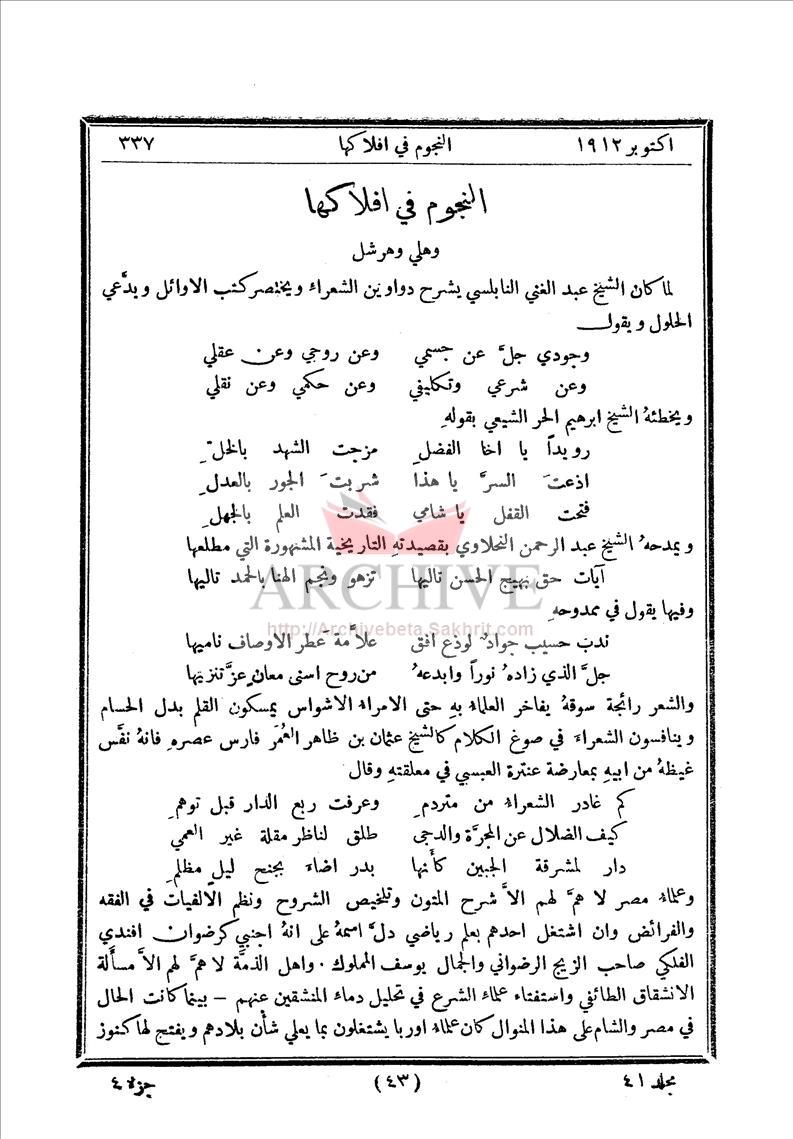 اكتوبر ١٩١٢ النجوم في افلاكها ٣٣٧
النجوم في افلاكها
وهلي وهرشل
لما كان الشيخ عبد الغني النابلسي يشرح دواوين الشعراء ويختصر كتب الاوائل ويدَّعي
الحلول ويقول
وجودي جلَّ عن جسمي وعن روحي وعن عقلي
وعن شرعي وتكليفي وعن حكمي وعن نقلي
ويخطئهُ الشيخ ابرهيم الحر الشيعي بقولهِ
رويداً يا اخا الفضلِ مزجت الشهد بالخلِّ
اذعتَ السرَّ يا هذا شربتَ الجور بالعدلِ
فتحت القفل يا شامي فقدت العلم بالجهلِ
ويمدحهُ الشيخ عبد الرحمن النحلاوي بقصيدتهِ التاريخية المشهورة التي مطلعها
آيات حق بهيج الحسن تاليها تزهو ونجم الهنا بالحمد تاليها
وفيها يقول في ممدوحهِ
ندب حسيب جوادٌ لوذع افق علاَّمة عَطر الاوصاف ناميها
جلَّ الذي زادهُ نوراً وابدعهُ من روح اسنى معانٍ عزَّ تنزيها
والشعر رائجة سوقهُ يفاخر العلماءُ بهِ حتى الامراء الاشواس يمسكون القلم بدل الحسام
وينافسون الشعراءَ في صوغ الكلام كالشيخ عثمان بن ظاهر العُمَر فارس عصرهِ فانهُ نفَّس
غيظهُ من ابيهِ بمعارضة عنترة العبسي في معلقتهِ وقال
كم غادر الشعراءُ من متردمِ وعرفت ربع الدار قبل توهمِ
كيف الضلال عن المجرَّة والدجى طلق لناظر مقلة غير العمي
دار لمشرقة الجبين كأنها بدر اضاءَ بجنح ليلٍ مظلمِ
وعلماءُ مصر لا همَّ لهم الاَّ شرح المتون وتلخيص الشروح ونظم الالفيات في الفقه
والفرائض وان اشتغل احدهم بعلم رياضي دلَّ اسمهُ على انهُ اجنبي كرضوان افندي
الفلكي صاحب الزيج الرضواني والجمال يوسف المملوك . واهل الذمَّة لا همَّ لهم الاَّ مسألة
الانشقاق الطائفي واستفتاء علماء الشرع في تحليل دماء المنشقين عنهم – بينما كانت الحال
في مصر والشام على هذا المنوال كان علماء اوربا يشتغلون بما يعلي شأن بلادهم ويفتح لها كنوز
مجلد ٤١ (٤٣) جزء ٤
ARCHIVE
http://Archivebeta.Sakhrit.com